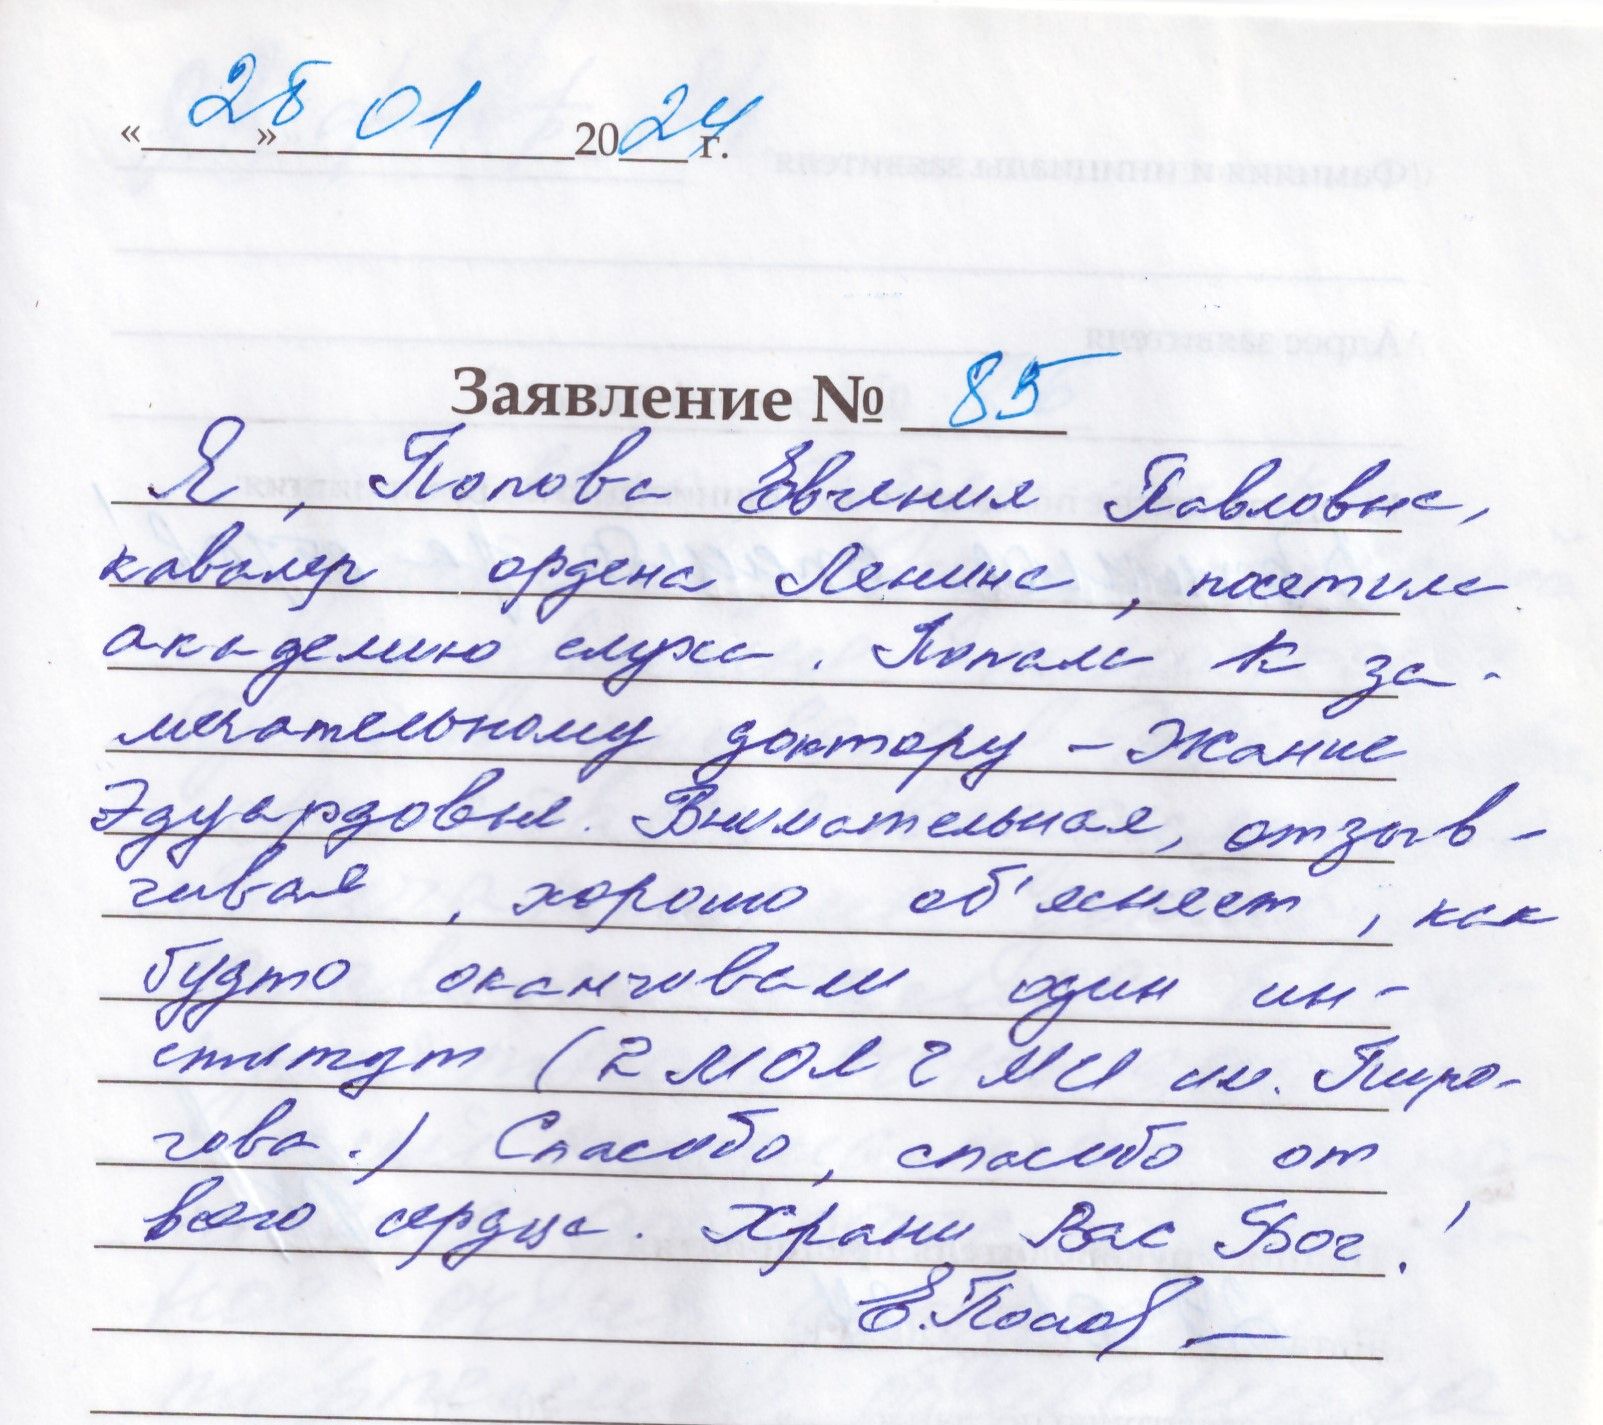 «25» 01 2024 г.
Заявление № 85
Я, Попова Евгения Павловна,
кавалер ордена Ленина, посетила
академию слуха. Попала к за-
мечательному доктору – Жание
Эдуардовне. Внимательная, отзыв-
чивая, хорошо об'ясняет, как
будто оканчивали один ин-
ститут (2 МОЛГМИ им. Пиро-
гова.) Спасибо, спасибо от
всего сердца. Храни Вас Бог!
Е.Попова